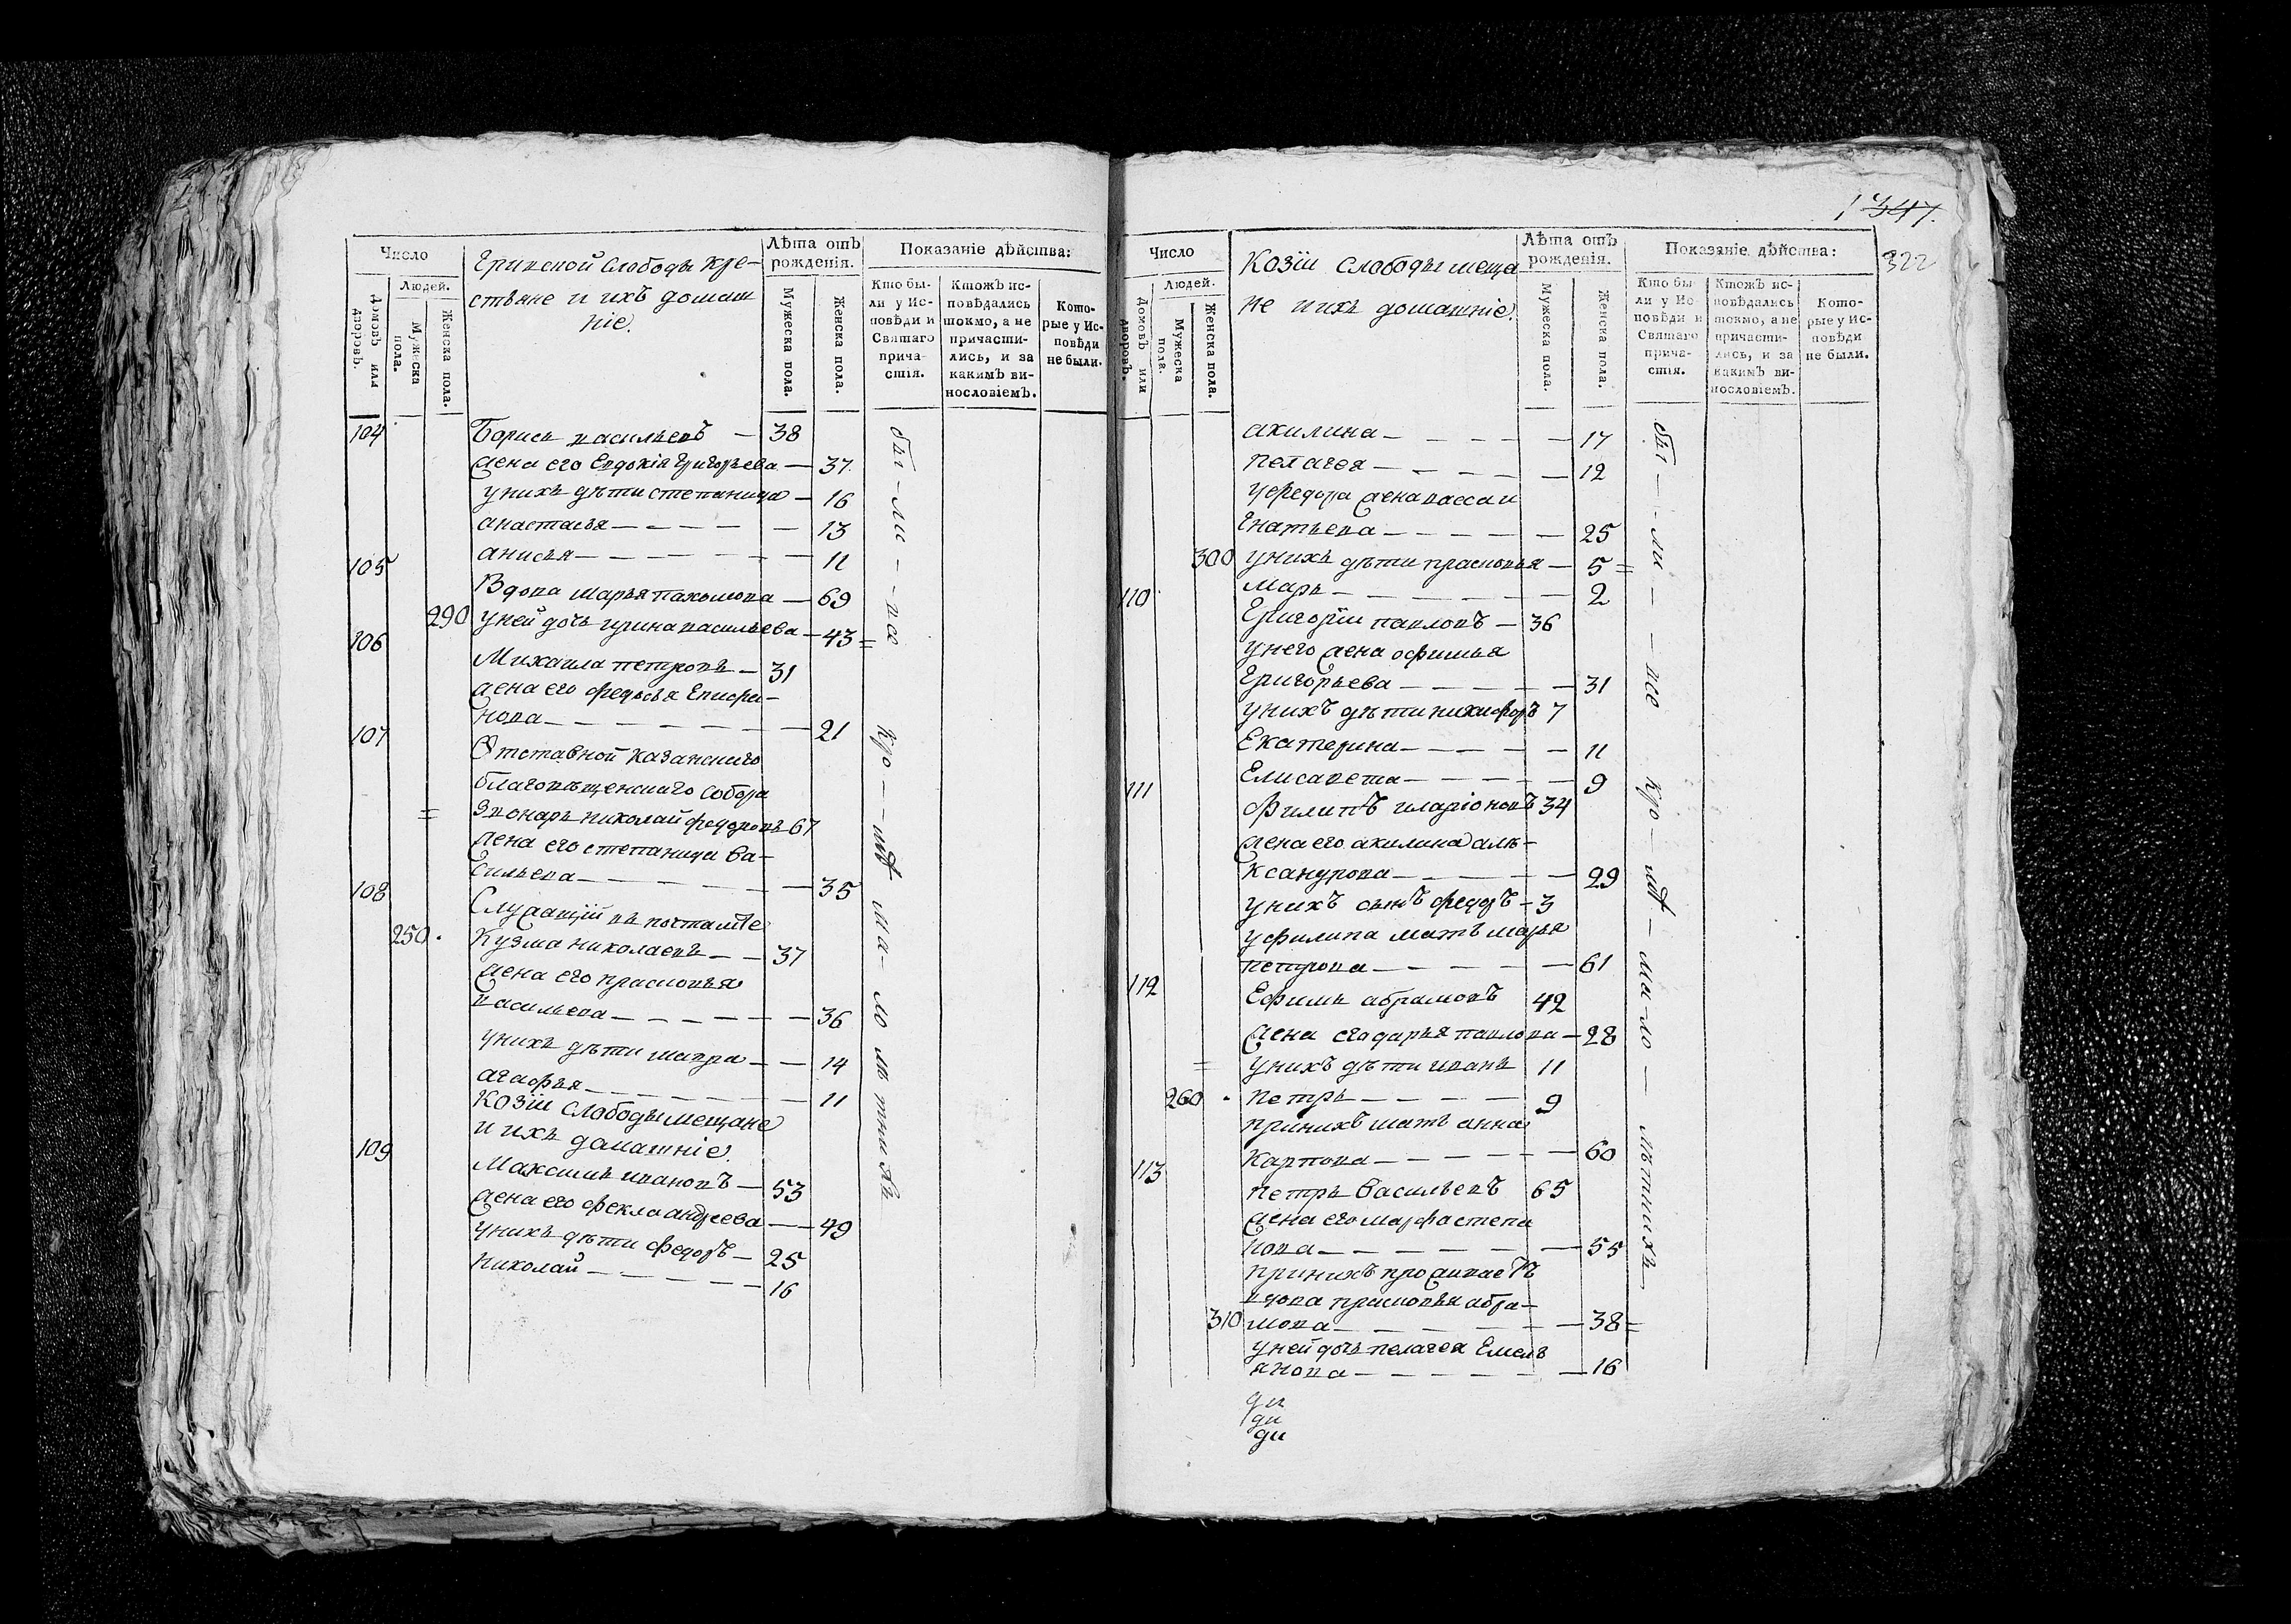 Число
Людей.
Домовъ или дворовъ.
Мужеска пола.
Женска пола.
Гривской Слободы кре-
стьяне и ихъ домаш
ніе.
Лѣта отъ рожденія.
Мужеска пола.
Женска пола.
Показаніе дѣйства:
Кто бы-
ли у Ис-
повѣди и
Святаго
прича-
стія.
Ктожъ ис-
повѣдались
токмо, а не
причасти-
лись, и за
какимъ ви-
нословіемъ.
Кото-
рые у Ис-
повѣди
не были.
104 Борисъ васильевъ — 38
жена его Евдокія григорьева — 37
унихъ дѣти степанида — 16
анастасья — 13
анисья — 11
105 Вдова марья пахомова — 69
290 уней дочь ирина васильева — 43 =
106 Михаила петровъ — 31
жена его федосья Епифа-
нова — 21
107 Отставной казанского
благовѣщенскаго собора
= звонарь николай федоровъ 67
жена его степанида ва-
сильева — 35
108 Служащій въ почтамте
250 . Кузма николаевъ — 37
жена его прасковья
васильева — 36
унихъ дѣти мавра — 14
агафья — 11
Козіи слободы мещане
и ихъ домашніе.
109 Максимъ ивановъ — 53
жена его фекла андреева — 49
унихъ дѣти федоръ — 25
николай — 16
бы - ли - - все
кро - - мѣ ма - ло лѣтнихъ
1 347.
322
Число
Людей.
Домовъ или дворовъ.
Мужеска пола.
Женска пола.
Козіи слободы меща
не и ихъ домашніе.
Лѣта отъ рожденія.
Мужеска пола.
Женска пола.
Показаніе дѣйства:
Кто бы
ли у Ис
повѣди и
Святаго
прича-
стія.
Ктожъ ис-
повѣдались
токмо, а не
причасти-
лись, и за
какимъ ви-
нословіемъ.
Кото-
рые у Ис-
повѣди
не были.
акилина — 17
пелагея — 12
уфедора жена васса и
гнатьева — 25
300 унихъ дѣти прасковья — 5 =
марь — 2
110 Григоріи павловъ — 36
унего жена офимья
Григорьева — 31
унихъ дѣти никифоръ 7
Екатерина — 11
Елисавета — 9
111 Филипъ иларіоновъ 34
жена его акилина алѣ-
ксандрова — 29
унихъ сынъ федоръ — 3
уфилипа мать марья
петрова — 61
112 Ефимъ абрамовъ 42
жена его дарья павлова — 28
= унихъ дѣти иванъ 11
260 . петръ — 9
принихъ мать анна
Карпова — 60
113 петръ васильевъ 65
жена его марфа степа
нова — 55
принихъ проживаетъ
вдова прасковья абра-
310 мова — 38 =
уней дочь пелагея Емель
янова — 16
бы - - ли - - все
кро - мѣ - ма - ло - лѣтнихъ
ди
ди
ди